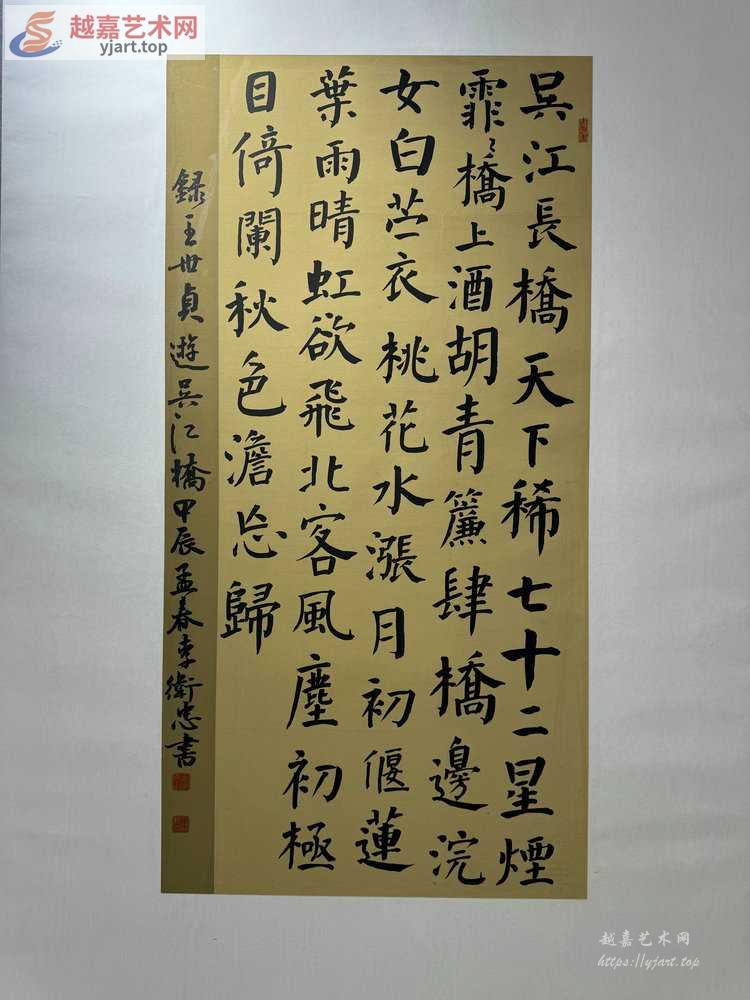 越嘉艺术网
yjart.top
吴江長橋天下稀七十二星煙
霏〻橋上酒胡青簾肆橋邊浣
女白苎衣桃花水漲月初偃蓮
葉雨晴虹欲飛北客風塵初極
目倚闌秋色澹忘歸
録王世貞遊吴江橋甲辰孟春李衛忠書
越嘉艺术网
https://yjart.top